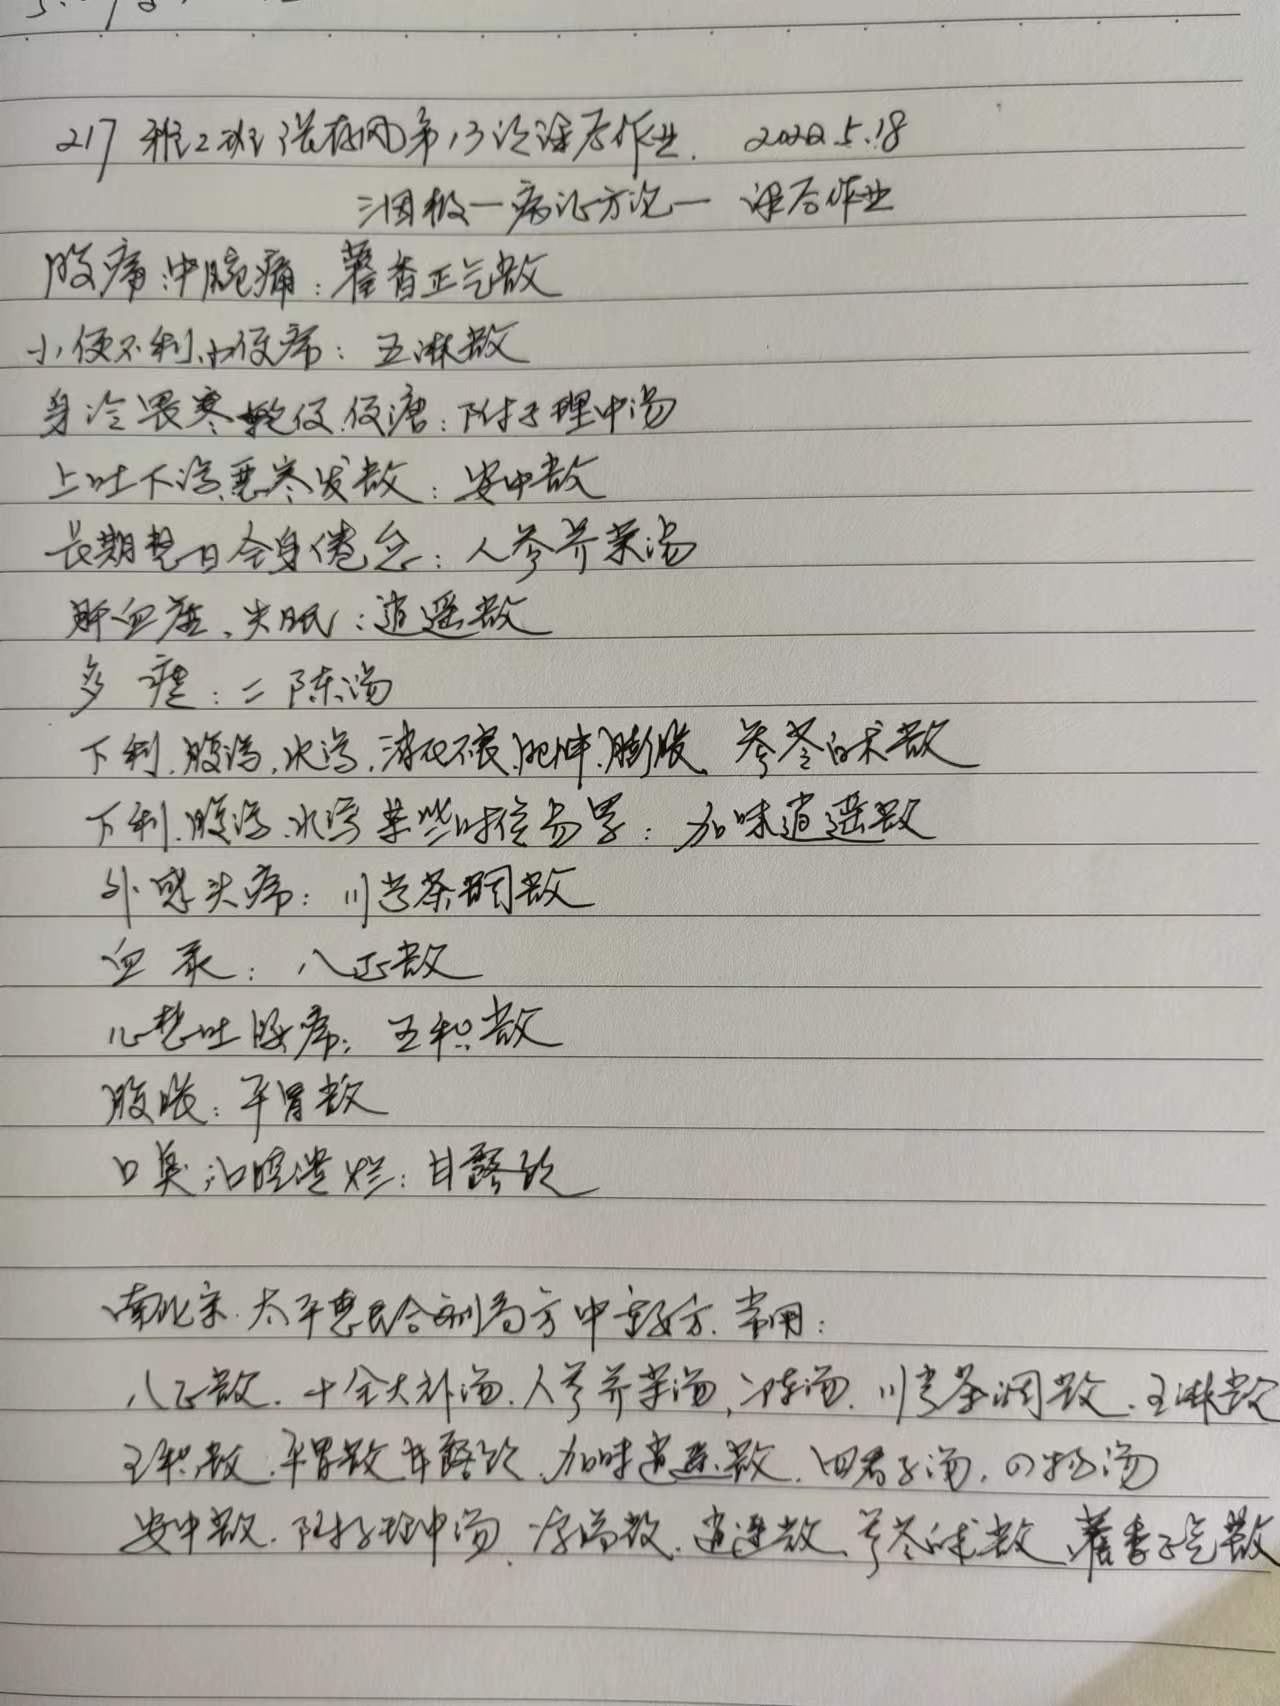 217 雅2班 张 风第13次课后作业. 2022.5.18
病证方 一 课后作业
腹痛 中脘痛：藿香正气散
小便不利 小便痛：五淋散
身冷畏寒 便溏：附子理中汤
上吐下泻 恶寒发散：安中散
长期整日全身倦怠：人参养荣汤
肝血虚、失眠：逍遥散
多痰：二陈汤
下利.腹泻.水泻.消化不良.肥胖.膨胀、参苓白术散
下利.腹泻.水泻 某些时候易累：加味逍遥散
外感头痛：川芎茶调散
血尿：八正散
心愁吐 腹痛：五积散
腹胀：平胃散
口臭 口腔溃烂：甘露饮
南北宋.太平惠民合剂局方中 方.常用：
八正散.十全大补汤.人参养荣汤,二陈汤.川芎茶调散.五淋散
五积散.平胃散 甘露饮.加味逍遥散.四君子汤.四物汤
安中散.附子理中汤. 散.逍遥散、参苓白术散 藿香正气散